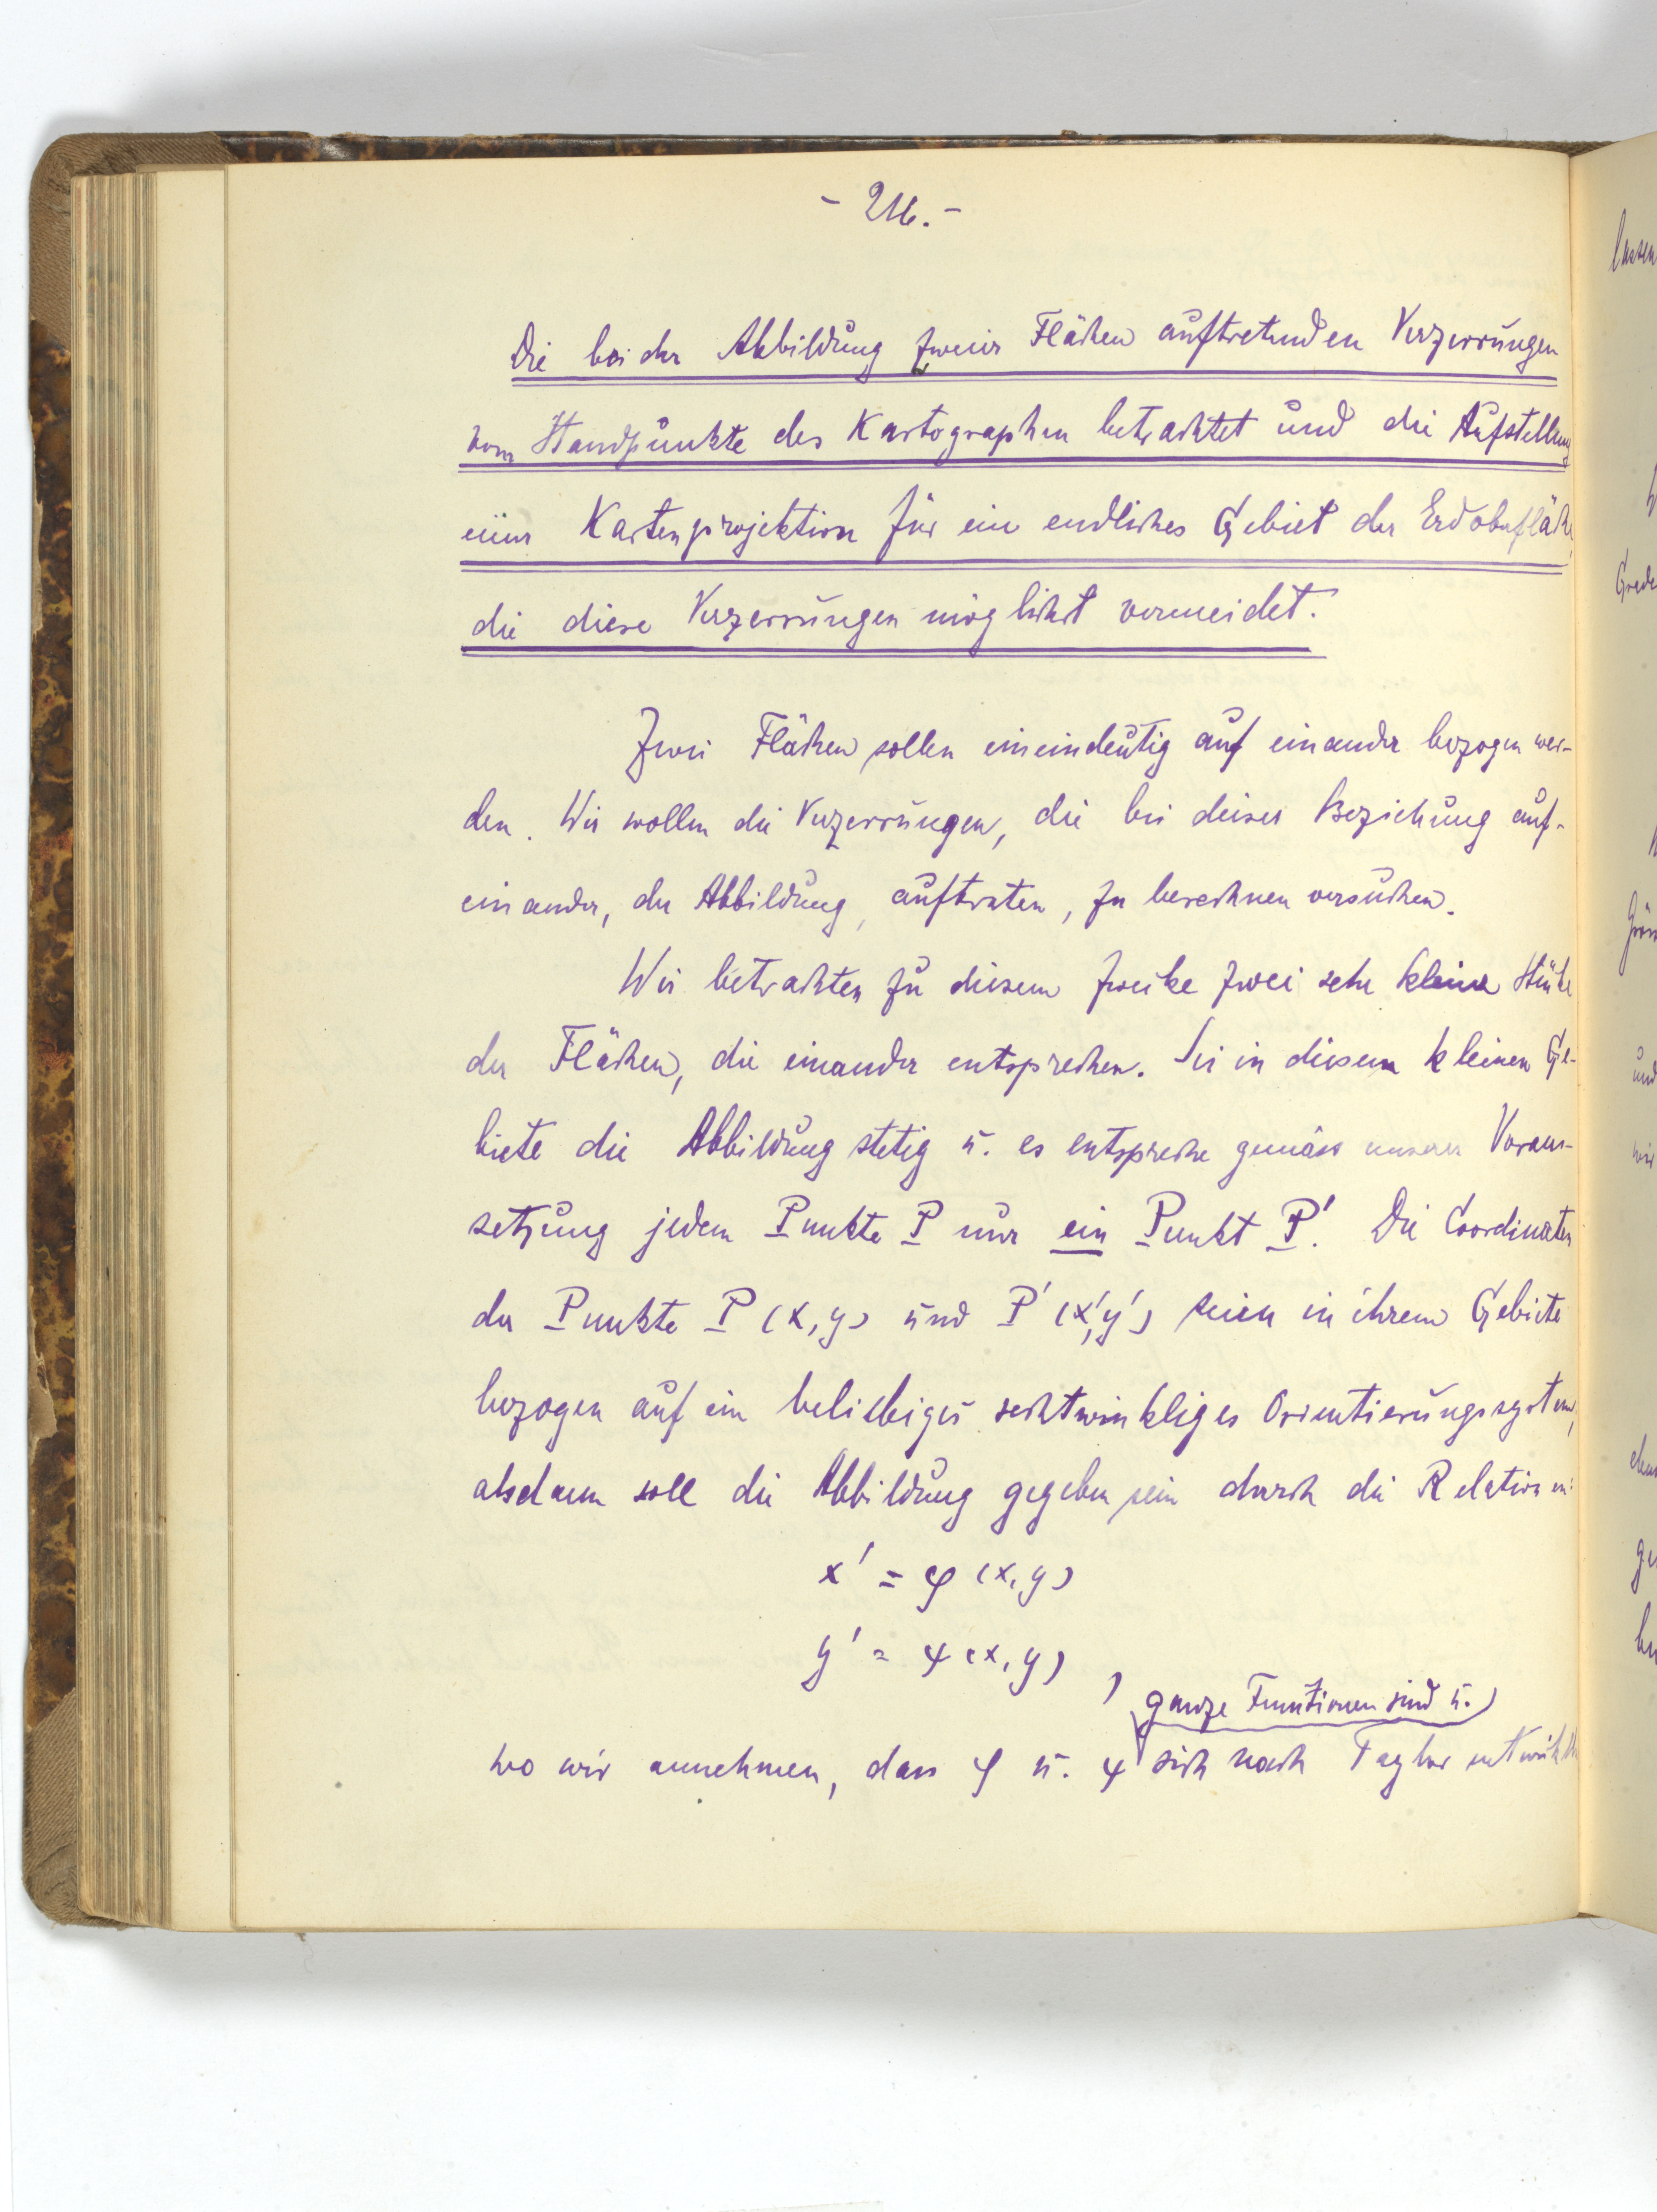 - 216. -
Die bei der Abbildung zweier Flächen auftretenden Verzerrungen
vom Standpunkte des Kartographen betrachtet und die Aufstellung
einer Kartenprojektion für ein endliches Gebiet der Erdoberfläche,
die diese Verzerrungen möglichst vermeidet.
Zwei Flächen sollen eineindeutig auf einander bezogen wer-
den. Wir wollen die Verzerrungen, die bei dieser Beziehung auf-
einander, der Abbildung, auftreten, zu berechnen versuchen.
Wir betrachten zu diesem Zwecke zwei sehr kleine Stücke
der Flächen, die einander entsprechen. Sei in diesem kleinen Ge-
biete die Abbildung stetig u. es entspreche gemäss unserer Voraus-
setzung jedem Punkte P nur ein Punkt P'. Die Coordinaten
der Punkte P (x, y) und P' (x', y') seien in ihrem Gebiete
bezogen auf ein beliebiges rechtwinkliges Orientierungssystem,
alsdann soll die Abbildung gegeben sein durch die Relationen:
x' = φ (x, y)
y' = ψ (x, y),
ganze Funktionen sind u.
wo wir annehmen, dass φ u. ψ sich nach Taylor entwickeln
lassen
und